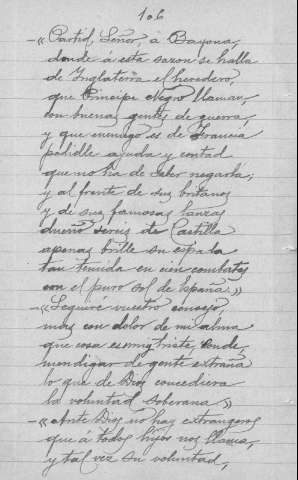 106
-«Partid, Señor, á Bayona,
donde á esta sazon se halla
de Inglaterra el heredero,
que Príncipe Negro llaman,
con buenas gentes de guerra,
y que enemigo es de Francia
pedidle ayuda y contad
que no ha de saber negarla;
y al frente de sus britanos
y de sus famosas lanzas
dueño sereis de Castilla
apenas brille su espada
tan temida en cien combates
con el puro sol de España.»
-«Seguiré vuestro consejo
mas con dolor de mi alma
que cosa es muy triste, Conde,
mendigar de gente extraña
lo que de Dios concediera
la voluntad soberana.»
-«Ante Dios no hay extrangeros
que á todos hijos nos llama,
y tal vez su voluntad,